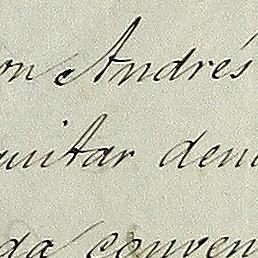 on Andrés
uitar den
da conven